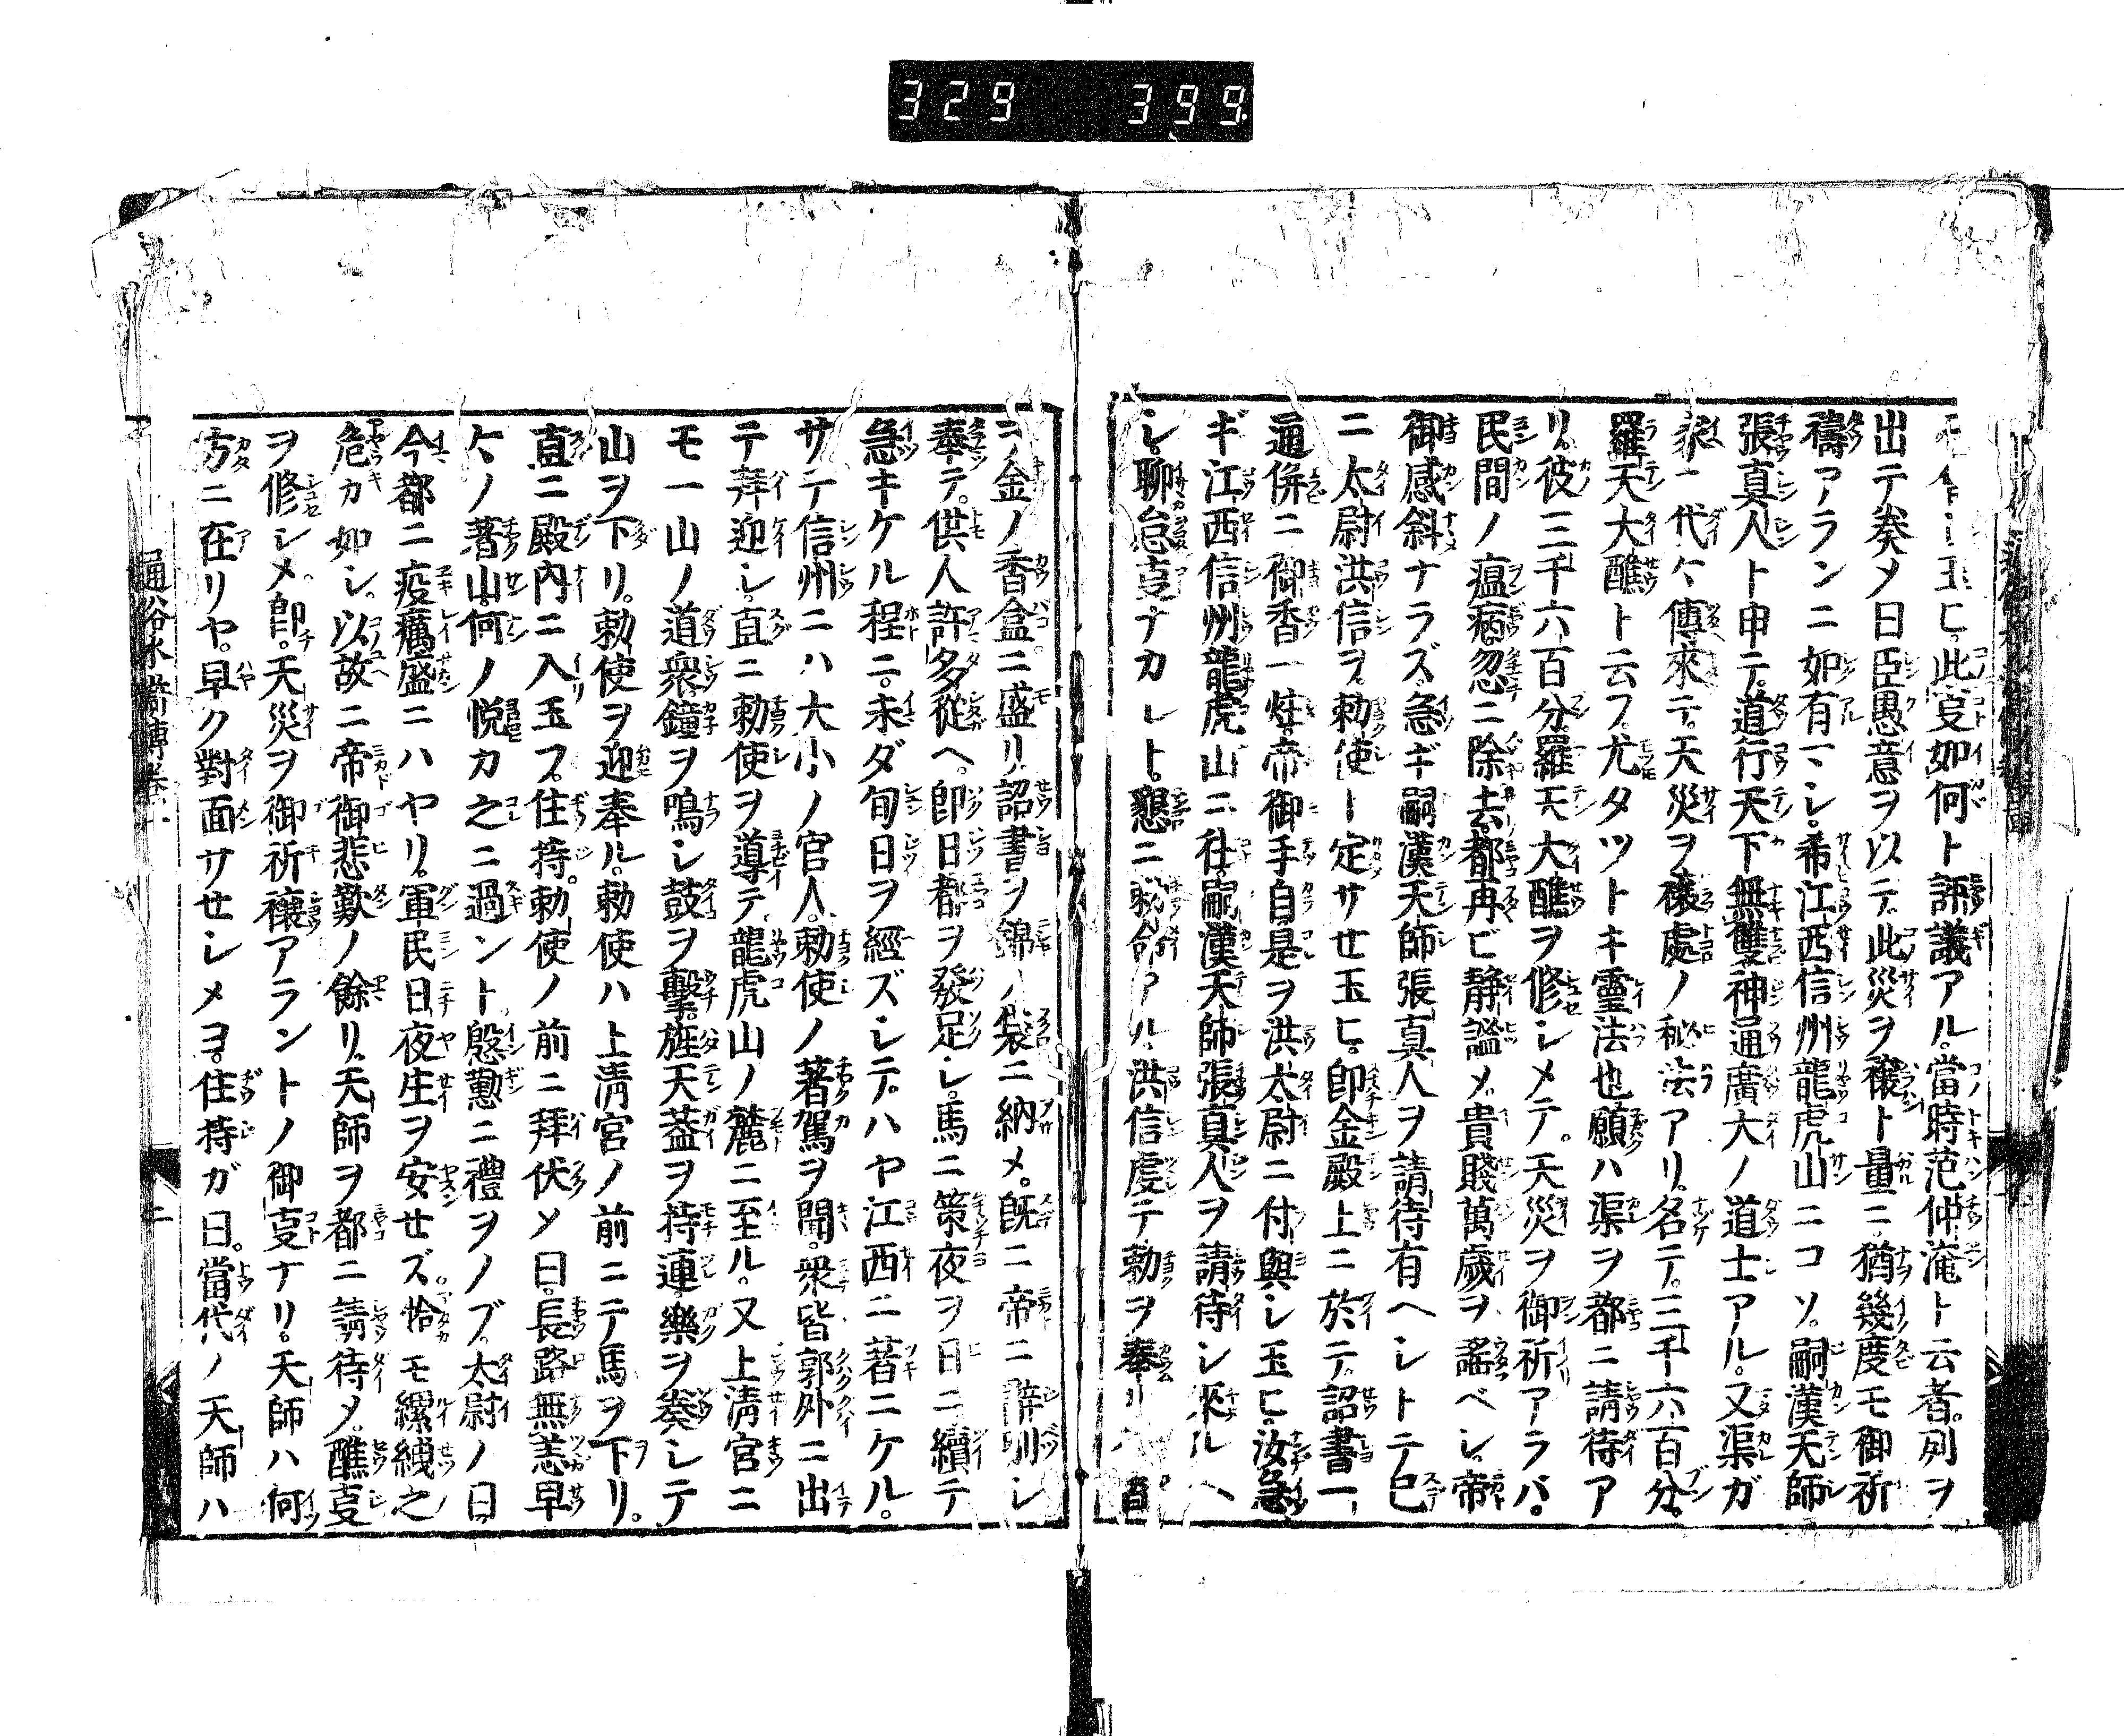 329 399
玉ヒ。此㕝如何ト評議アル。當時范仲淹ト云者。列ヲ
出テ奏メ曰臣愚意ヲ以テ。此災ヲ禳ト量ニ。猶幾度モ御祈
禱アランニ如有ベシ。希江西信州龍虎山ニコソ。嗣漢天師
張真人ト申テ。道行天下無雙神通廣大ノ道士アル。又渠ガ
家ニ代々傳來テ。天災ヲ禳處ノ秘法アリ。名テ。三千六百分。
羅天大醮ト云フ。尤タツトキ靈法也願ハ渠ヲ都ニ請待ア
リ。彼三千六百分羅天大醮ヲ修シメテ。天災ヲ御祈アラバ。
民間ノ瘟病忽ニ除去。都再ビ静謐メ。貴賤萬歳ヲ謠ベシ。帝
御感斜ナラズ。急ギ嗣漢天師張真人ヲ請待有ヘシトテ已
ニ太尉洪信ヲ。勅使ト定サセ玉ヒ。即金殿上ニ於テ。詔書一
通併ニ御香一炷。帝御手自是ヲ洪太尉ニ付與シ玉ヒ。汝急
ギ江西信州龍虎山ニ往。嗣漢天師張真人ヲ請待シ來ルヘ
シ。聊怠㕝ナカレト。懇ニ勅命アル。洪信虔テ勅ヲ奉リ
金ノ香盒ニ盛リ。詔書ヲ錦ノ袋ニ納メ。既ニ帝ニ辭別シ
奉テ。供人許多從ヘ。即日都ヲ發足シ。馬ニ策夜ヲ日ニ續テ
急キケル程ニ。未ダ旬日ヲ經ズシテ。ハヤ江西ニ著ニケル。
サテ信州ニハ大小ノ官人。勅使ノ著駕ヲ聞。衆皆郭外ニ出
テ拜迎シ。直ニ勅使ヲ導テ。龍虎山ノ麓ニ至ル。又上淸宮ニ
モ一山ノ道衆。鐘ヲ鳴シ鼓ヲ擊。旌天葢ヲ持連。樂ヲ奏シテ
山ヲ下リ。勅使ヲ迎奉ル。勅使ハ上淸宮ノ前ニテ馬ヲ下リ。
直ニ殿内ニ入玉フ。住持。勅使ノ前ニ拜伏メ曰。長路無恙早
々ノ著山。何ノ悦カ之ニ過ント。慇懃ニ禮ヲノブ。太尉ノ曰
今都ニ疫癘盛ニハヤリ。軍民日夜生ヲ安セズ。恰モ縲絏之
危カ如シ。以故ニ帝御悲歎ノ餘リ。天師ヲ都ニ請待メ。醮㕝
ヲ修シメ。即。天災ヲ御祈禳アラントノ御㕝ナリ。天師ハ何
方ニ在リヤ。早ク對面サセシメヨ。住持ガ曰。當代ノ天師ハ
通俗水滸傳卷一
二